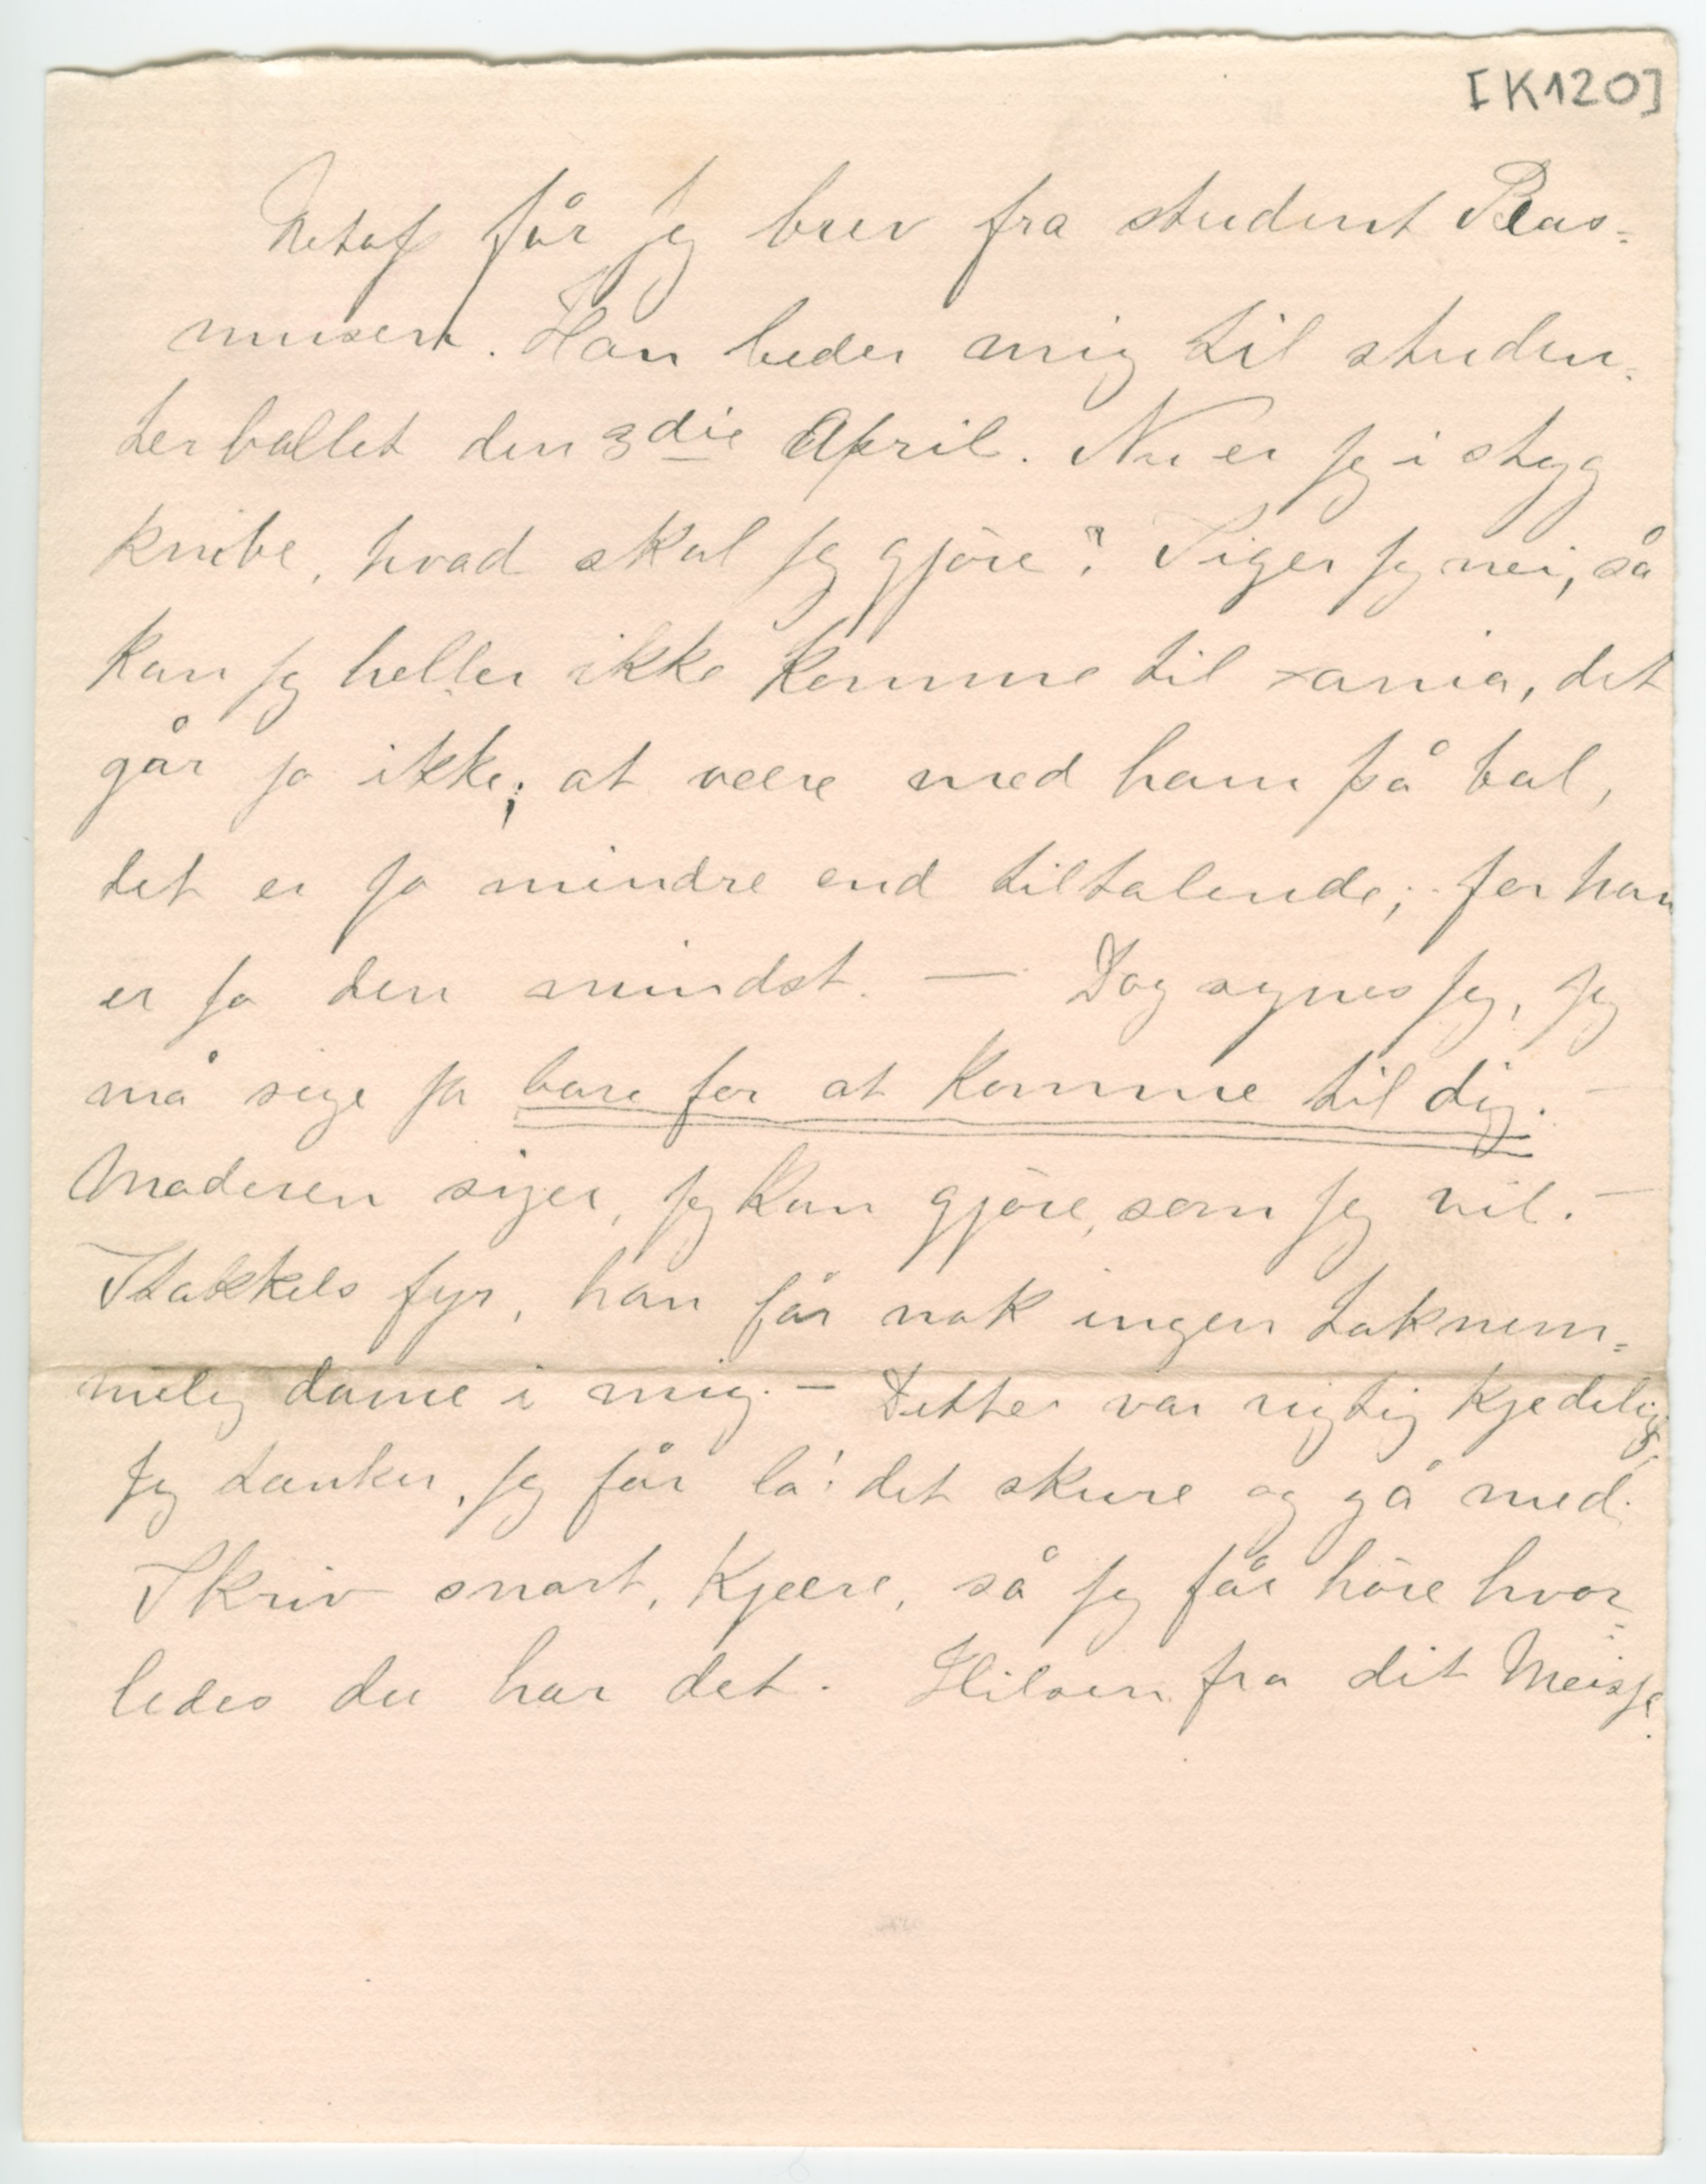 [K120]
Netop får jeg brev fra student Ras=
musen. Han beder mig til studen=
terballet den 3die April. Nu er jeg i styg
knibe, hvad skal jeg gjöre? Siger jeg nei, så
kan jeg heller ikke komme til xania, det
går jo ikke; at være med ham på bal,
det er jo mindre end tiltalende; for han
er jo den mindst. — Dog synes jeg, jeg
må sige ja bare for at komme til dig. —
Moderen siger, jeg kan gjöre, som jeg vil. —
Stakkels fyr, han får nok ingen taknem=
melig dame i mig. — Dette var rigtig kjedelig,
Jeg tænker, jeg får la' det skure og gå med.
Skriv snart, kjære, så jeg får höre hvor=
ledes du har det. Hilsen fra dit